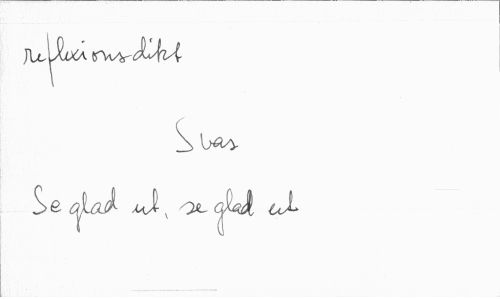 reflexionsdikt
Svas
Se glad ut, se glad ut